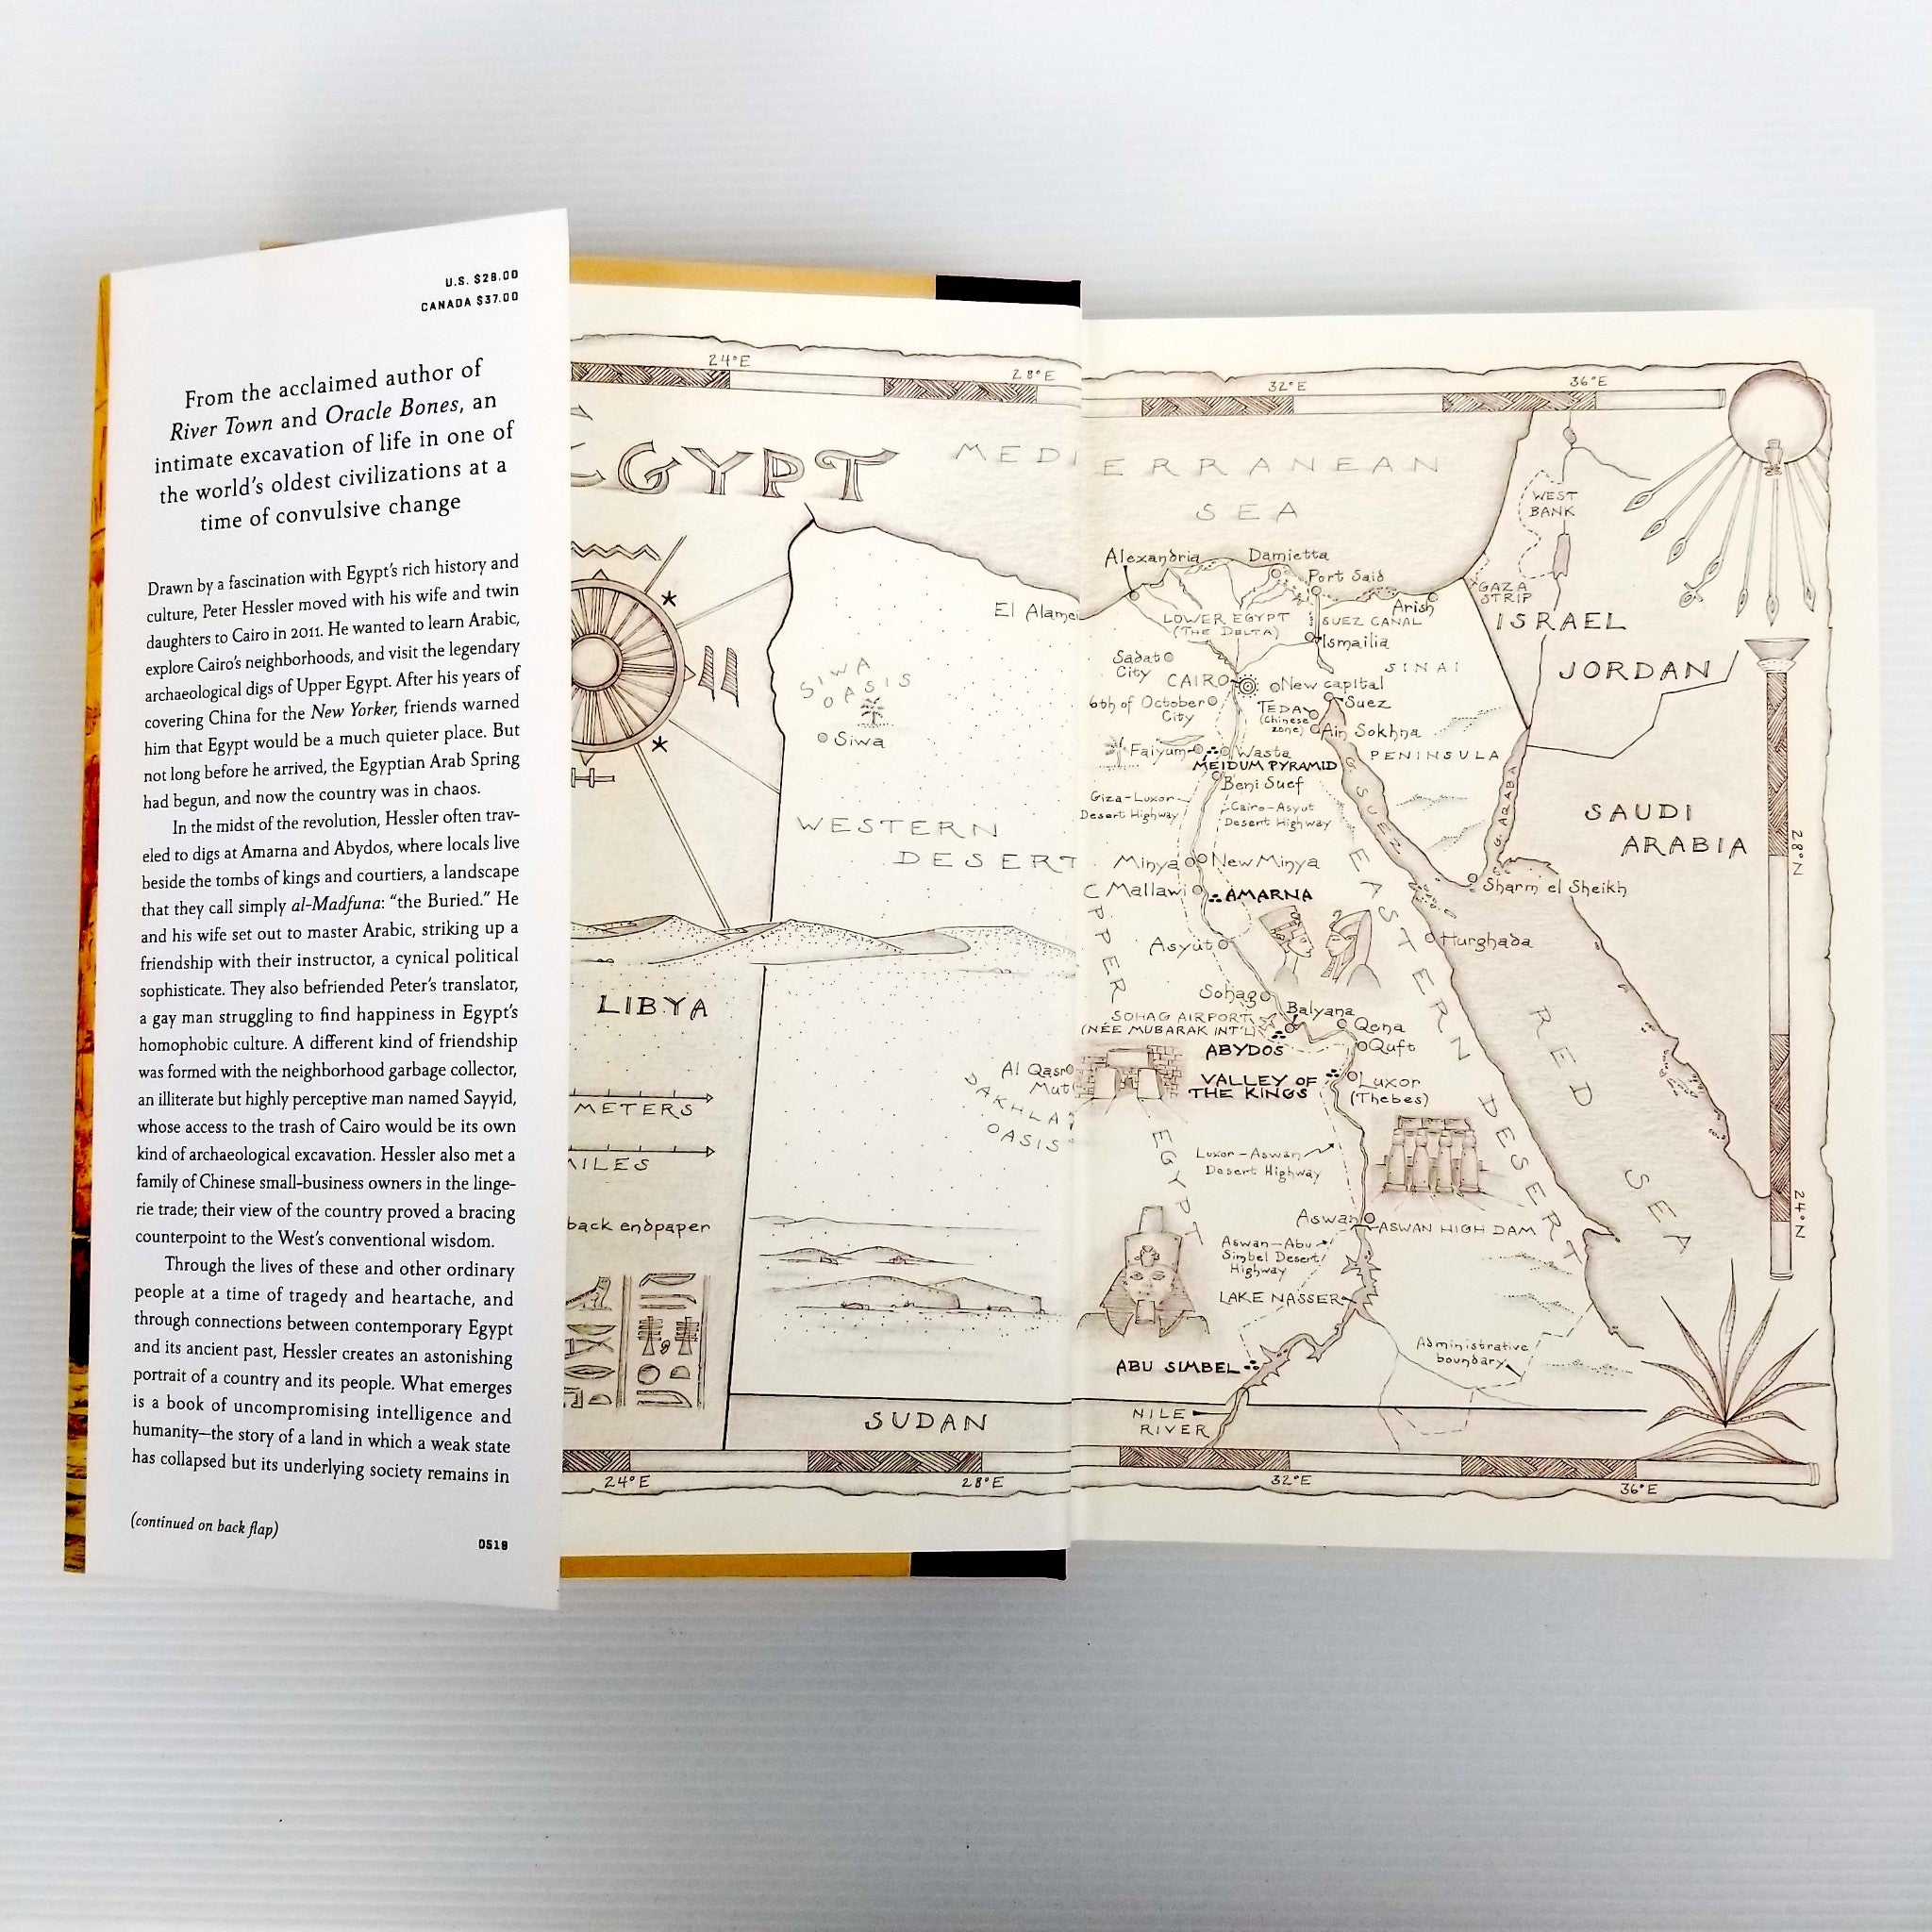 U.S. $28.00
CANADA $37.00
From the acclaimed author of
River Town and Oracle Bones, an
intimate excavation of life in one of
the world's oldest civilizations at a
time of convulsive change
Drawn by a fascination with Egypt's rich history and
culture, Peter Hessler moved with his wife and twin
daughters to Cairo in 2011. He wanted to learn Arabic,
explore Cairo's neighborhoods, and visit the legendary
archaeological digs of Upper Egypt. After his years of
covering China for the New Yorker, friends warned
him that Egypt would be a much quieter place. But
not long before he arrived, the Egyptian Arab Spring
had begun, and now the country was in chaos.
In the midst of the revolution, Hessler often trav-
eled to digs at Amarna and Abydos, where locals live
beside the tombs of kings and courtiers, a landscape
that they call simply al-Madfuna: "the Buried." He
and his wife set out to master Arabic, striking up a
friendship with their instructor, a cynical political
sophisticate. They also befriended Peter's translator,
a gay man struggling to find happiness in Egypt's
homophobic culture. A different kind of friendship
was formed with the neighborhood garbage collector,
an illiterate but highly perceptive man named Sayyid,
whose access to the trash of Cairo would be its own
kind of archaeological excavation. Hessler also met a
family of Chinese small-business owners in the linge-
rie trade; their view of the country proved a bracing
counterpoint to the West's conventional wisdom.
Through the lives of these and other ordinary
people at a time of tragedy and heartache, and
through connections between contemporary Egypt
and its ancient past, Hessler creates an astonishing
portrait of a country and its people. What emerges
is a book of uncompromising intelligence and
humanity—the story of a land in which a weak state
has collapsed but its underlying society remains in
(continued on back flap)
0519
24°E
28°E
32°E
36°E
EGYPT
MEDITERRANEAN
SEA
WEST
BANK
GAZA
STRIP
ISRAEL
JORDAN
SAUDI
ARABIA
Alexandria
Damietta
Port Said
Arish
El Alamei
LOWER EGYPT
(THE DELTA)
SUEZ CANAL
Ismailia
SINAI
PENINSULA
Sadat
City
CAIRO
New capital
6th of October
City
TEDA
(Chinese
zone)
Suez
Ain Sokhna
SIWA
OASIS
Siwa
Faiyum
Wasta
MEIDUM PYRAMID
Beni Suef
G. SUEZ
G. ARABA
Giza-Luxor
Desert Highway
Cairo-Asyut
Desert Highway
WESTERN
DESERT
Minya
New Minya
Mallawi
AMARNA
Sharm el Sheikh
Asyut
Hurghada
28°N
UPPER
EGYPT
EASTERN DESERT
RED SEA
LIBYA
Sohag
SOHAG AIRPORT
(NÉE MUBARAK INT'L)
Balyana
Qena
ABYDOS
Quft
Al Qasr
Mut
DAKHLA
OASIS
VALLEY OF
THE KINGS
Luxor
(Thebes)
METERS
MILES
Luxor-Aswan
Desert Highway
24°N
back endpaper
Aswan
ASWAN HIGH DAM
Aswan-Abu
Simbel Desert
Highway
LAKE NASSER
ABU SIMBEL
Administrative
boundary
SUDAN
NILE
RIVER
24°E
28°E
32°E
36°E